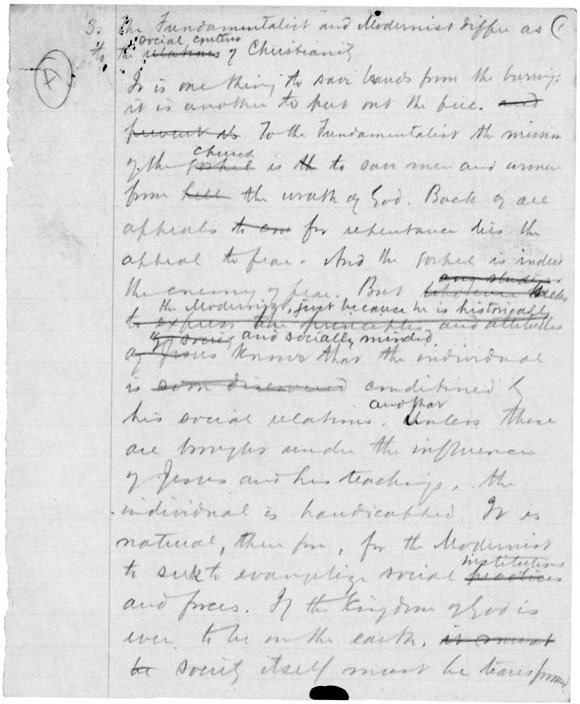 3. The Fundamentalist and Modernist differ as (
to social content
the relations of Christianity
A
It is one thing to save brands from the burning:
it is another to put out the fire. and
prevent its To the Fundamentalist the mission
church
of the gospel is th to save men and women
from hell the wrath of God. Back of all
appeals to an for repentance lies the
appeal to fear. And the gospel is indeed
any student
the enemy of fear. But whoever seeks
the Modernist, just because he is historically
to express the principles and attitudes
and socially minded,
of Jesus knows that the individual
is soon discovered conditioned by
his social relations. and that Unless these
are brought under the influence
of Jesus and his teachings, the
individual is handicapped. It is
natural, therefore, for the Modernist
institutions
to seek to evangelize social practices
and forces. If the Kingdom of God is
ever to be on the earth, it must
be society itself must be transformed